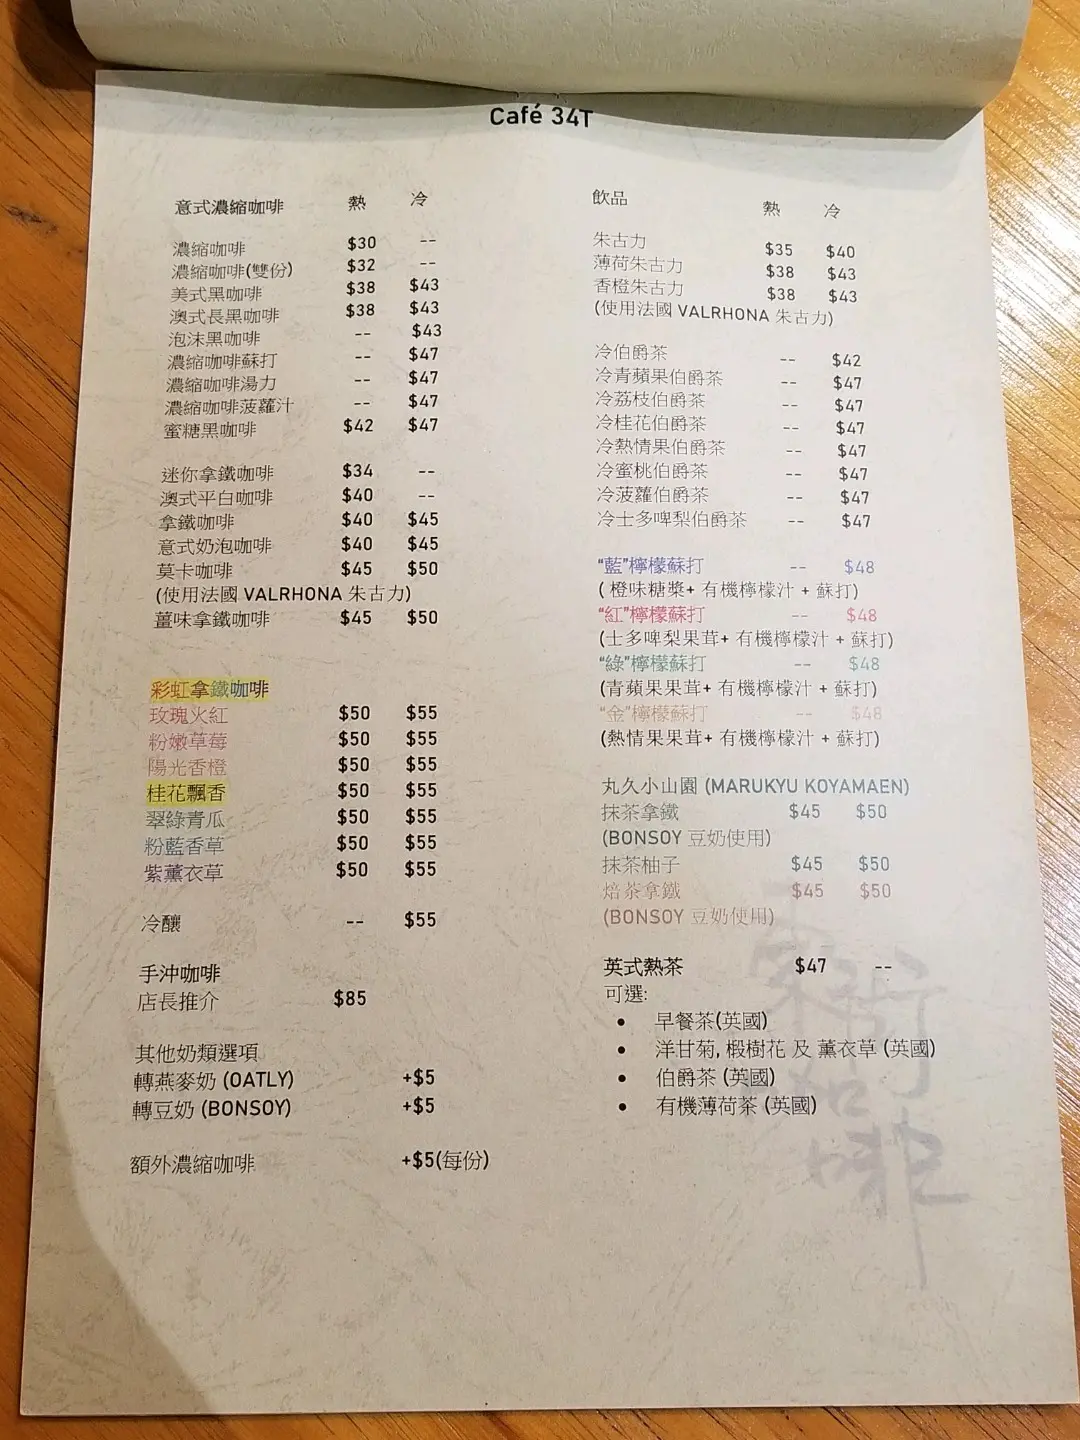 Café 34T
意式濃縮咖啡 熱 冷
濃縮咖啡 $30 --
濃縮咖啡(雙份) $32 --
美式黑咖啡 $38 $43
澳式長黑咖啡 $38 $43
泡沫黑咖啡 -- $43
濃縮咖啡蘇打 -- $47
濃縮咖啡湯力 -- $47
濃縮咖啡菠蘿汁 -- $47
蜜糖黑咖啡 $42 $47
迷你拿鐵咖啡 $34 --
澳式平白咖啡 $40 --
拿鐵咖啡 $40 $45
意式奶泡咖啡 $40 $45
莫卡咖啡 $45 $50
(使用法國 VALRHONA 朱古力)
薑味拿鐵咖啡 $45 $50
彩虹拿鐵咖啡
玫瑰火紅 $50 $55
粉嫩草莓 $50 $55
陽光香橙 $50 $55
桂花飄香 $50 $55
翠綠青瓜 $50 $55
粉藍香草 $50 $55
紫薰衣草 $50 $55
冷釀 -- $55
手沖咖啡
店長推介 $85
其他奶類選項
轉燕麥奶 (OATLY) +$5
轉豆奶 (BONSOY) +$5
額外濃縮咖啡 +$5(每份)
飲品 熱 冷
朱古力 $35 $40
薄荷朱古力 $38 $43
香橙朱古力 $38 $43
(使用法國 VALRHONA 朱古力)
冷伯爵茶 -- $42
冷青蘋果伯爵茶 -- $47
冷荔枝伯爵茶 -- $47
冷桂花伯爵茶 -- $47
冷熱情果伯爵茶 -- $47
冷蜜桃伯爵茶 -- $47
冷菠蘿伯爵茶 -- $47
冷士多啤梨伯爵茶 -- $47
“藍”檸檬蘇打 -- $48
( 橙味糖漿+ 有機檸檬汁 + 蘇打)
“紅”檸檬蘇打 -- $48
(士多啤梨果茸+ 有機檸檬汁 + 蘇打)
“綠”檸檬蘇打 -- $48
(青蘋果果茸+ 有機檸檬汁 + 蘇打)
“金”檸檬蘇打 -- $48
(熱情果果茸+ 有機檸檬汁 + 蘇打)
丸久小山園 (MARUKYU KOYAMAEN)
抹茶拿鐵 $45 $50
(BONSOY 豆奶使用)
抹茶柚子 $45 $50
焙茶拿鐵 $45 $50
(BONSOY 豆奶使用)
英式熱茶 $47 --
可選:
• 早餐茶(英國)
• 洋甘菊, 椴樹花 及 薰衣草 (英國)
• 伯爵茶 (英國)
• 有機薄荷茶 (英國)